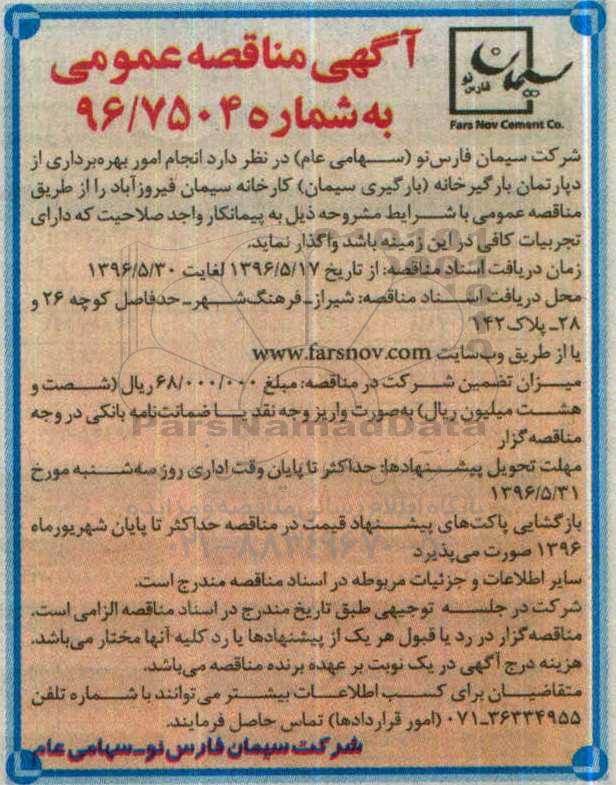 آگهی مناقصه عمومی
به شماره ۹۶/۷۵۰۴
سیمان
فارس نو
Fars Nov Cement Co.
شرکت سیمان فارس‌نو (سهامی عام) در نظر دارد انجام امور بهره‌برداری از
دپارتمان بارگیرخانه (بارگیری سیمان) کارخانه سیمان فیروزآباد را از طریق
مناقصه عمومی با شرایط مشروحه ذیل به پیمانکار واجد صلاحیت که دارای
تجربیات کافی در این زمینه باشد واگذار نماید.
زمان دریافت اسناد مناقصه: از تاریخ ۱۳۹۶/۵/۱۷ لغایت ۱۳۹۶/۵/۳۰
محل دریافت اسناد مناقصه: شیراز-فرهنگ‌شهر-حدفاصل کوچه ۲۶ و
۲۸-پلاک ۱۴۲
یا از طریق وب‌سایت www.farsnov.com
میزان تضمین شرکت در مناقصه: مبلغ ۶۸/۰۰۰/۰۰۰ ریال (شصت و
هشت میلیون ریال) به‌صورت واریز وجه نقد یا ضمانت‌نامه بانکی در وجه
مناقصه‌گزار
ParsNamadData
مهلت تحویل پیشنهادها: حداکثر تا پایان وقت اداری روز سه‌شنبه مورخ
۱۳۹۶/۵/۳۱
بازگشایی پاکت‌های پیشنهاد قیمت در مناقصه حداکثر تا پایان شهریورماه
۱۳۹۶ صورت می‌پذیرد
سایر اطلاعات و جزئیات مربوطه در اسناد مناقصه مندرج است.
شرکت در جلسه توجیهی طبق تاریخ مندرج در اسناد مناقصه الزامی است.
مناقصه‌گزار در رد یا قبول هر یک از پیشنهادها یا رد کلیه آنها مختار می‌باشد.
هزینه درج آگهی در یک نوبت بر عهده برنده مناقصه می‌باشد.
متقاضیان برای کسب اطلاعات بیشتر می‌توانند با شماره تلفن
۰۷۱-۳۶۳۳۴۹۵۵ (امور قراردادها) تماس حاصل فرمایند.
شرکت سیمان فارس نو-سهامی عام